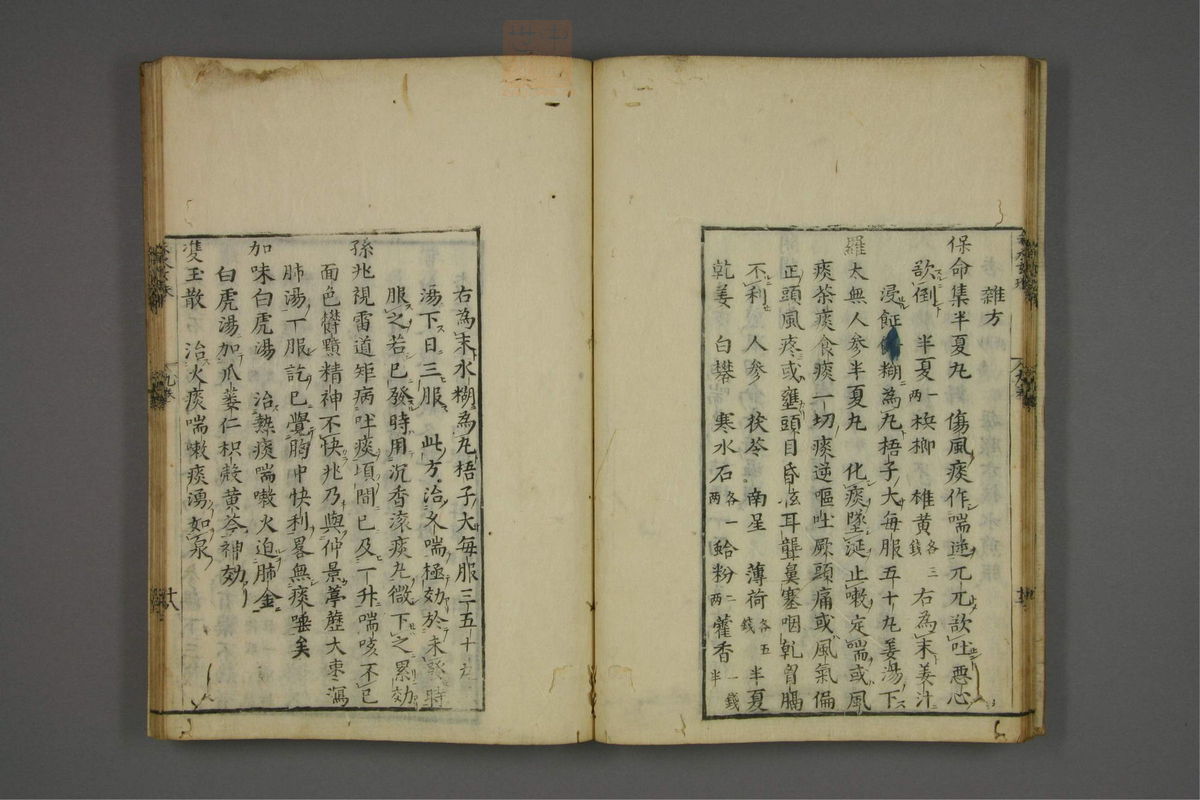 雜方
保命集半夏丸 傷風痰作喘逆兀兀欲吐惡心
欲倒 半夏一兩 梹榔 雄黃各三錢 右為末姜汁
浸餅糊為丸梧子大每服五十丸姜湯下
羅太無人參半夏丸 化痰墜涎止嗽定喘或風
痰茶痰食痰一切痰逆嘔吐厥頭痛或風氣偏
正頭風疼或壅頭目昏眩耳聾鼻塞咽乾胷膈
不利 人參 茯苓 南星 薄荷各五錢 半夏
乾姜 白礬 寒水石各一兩 蛤粉二兩 藿香一錢半
右為末水糊為丸梧子大每服三五十丸
湯下日三服 此方治久喘極効於未發時
服之若已發時用沉香滾痰丸微下之累効
孫兆視雷道矩病吐痰頃間已及一升喘咳不已
面色鬱黯精神不快兆乃與仲景葶藶大棗瀉
肺湯一服訖已覺胸中快利畧無痰唾矣
加味白虎湯 治熱痰喘嗽火迫肺金
白虎湯加爪蔞仁枳殼黃芩神効
雙玉散 治火痰喘嗽痰湧如泉
九卷
十八